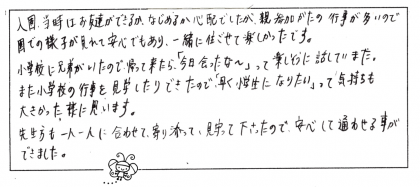 入園当時はお友達ができるか、なじめるか心配でしたが、親参加がたの行事が多いので
園での様子が見れて安心でもあり、一緒に過ごせて楽しかったです。
小学校に兄弟がいたので、帰って来たら、「今日会ったな〜」って楽しそうに話していました。
また小学校の行事を見学したりできたので「早く小学生になりたい」って気持ちも
大きかった様に思います。
先生方も一人一人に合わせて、寄り添って、見守って下さったので、安心して通わせる事が
できました。